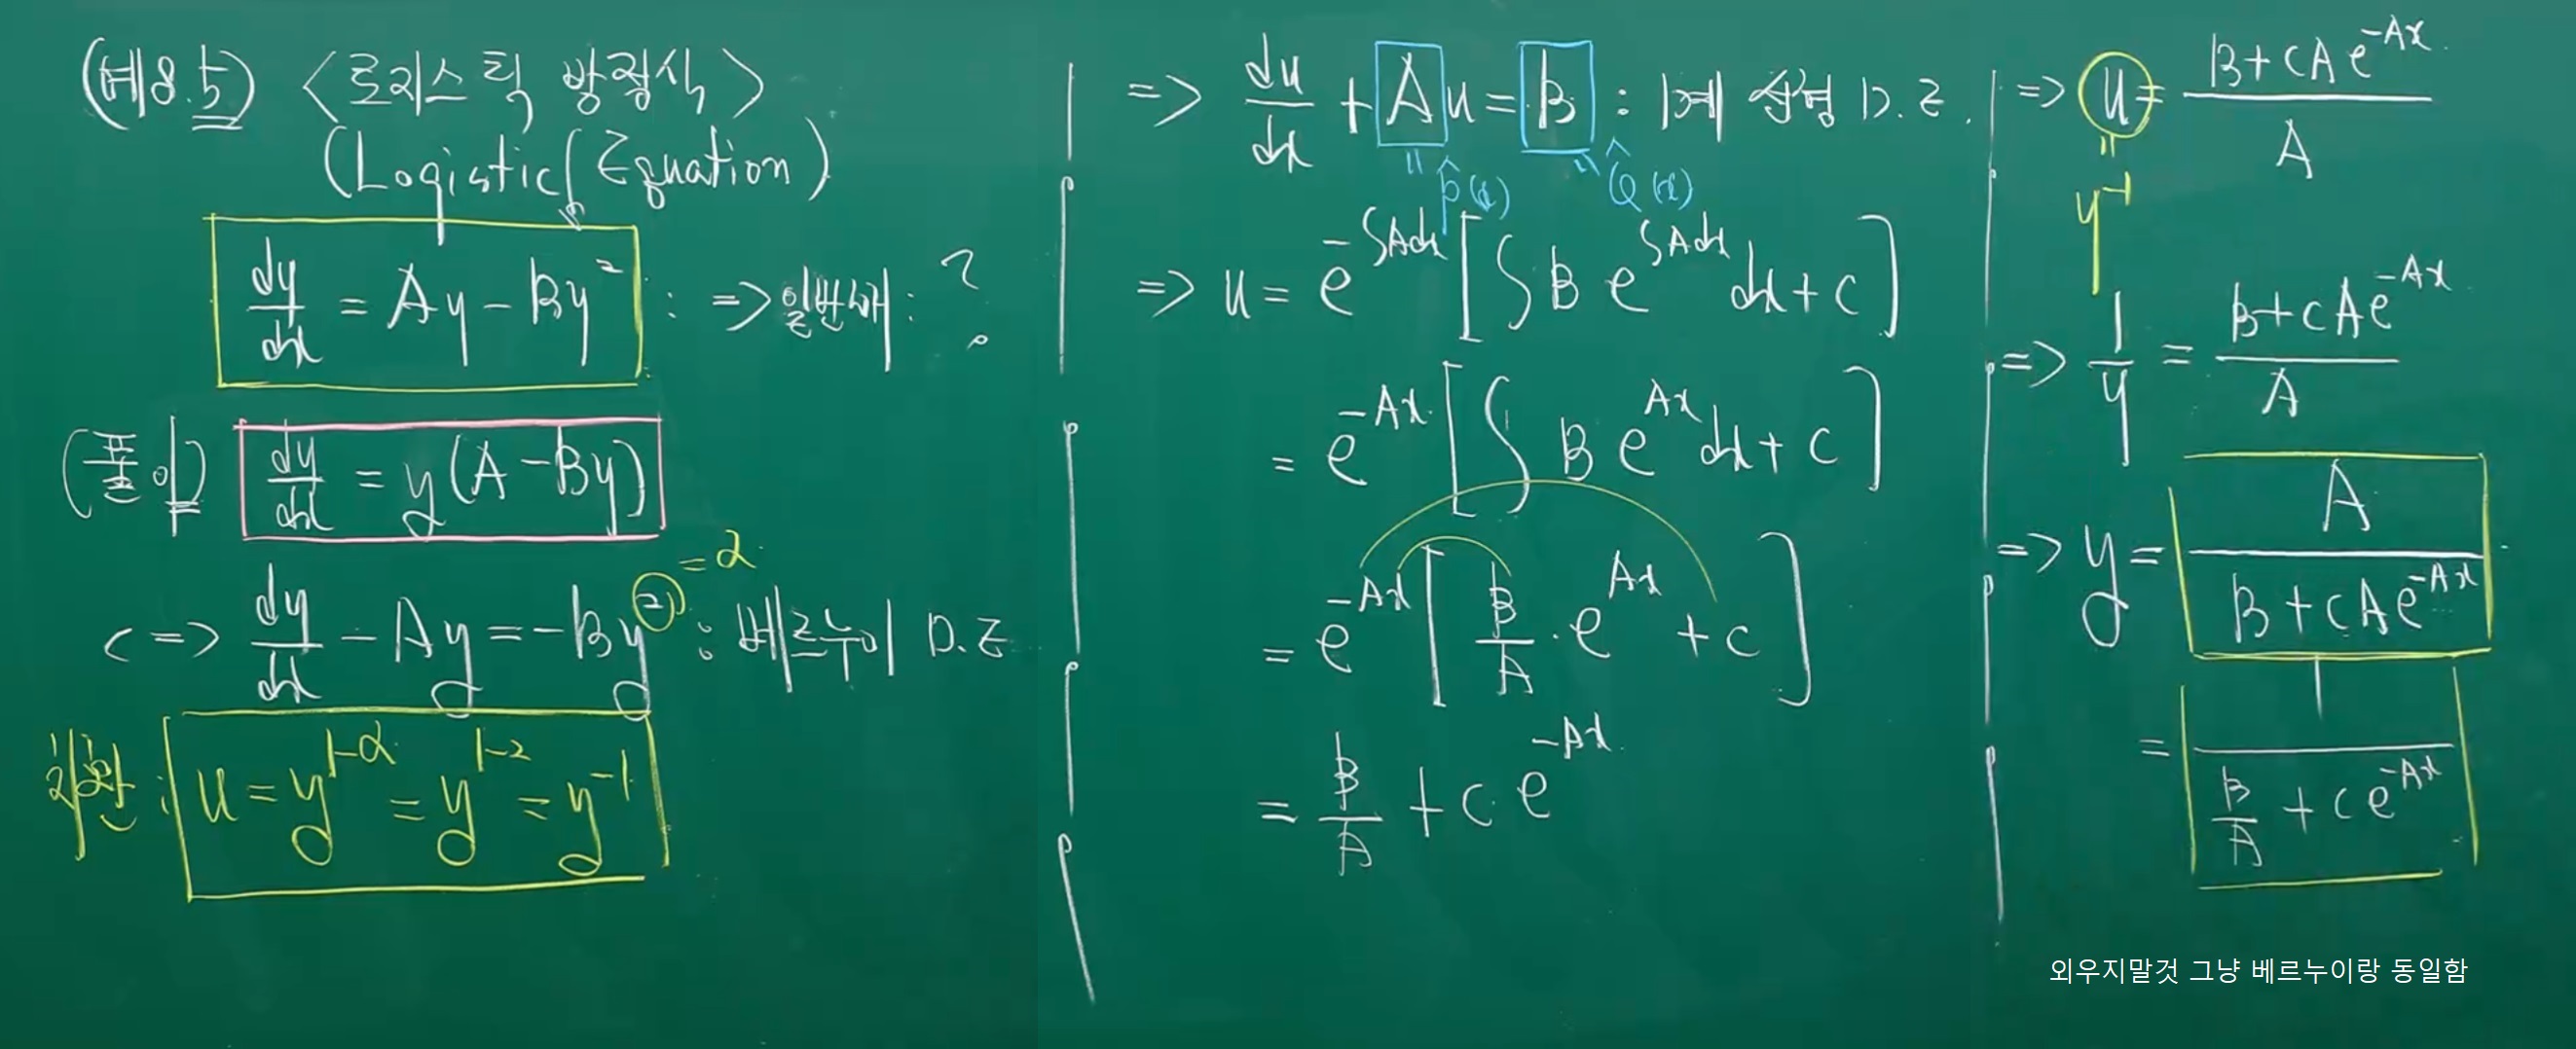 (예8.5) <로지스틱 방정식>
(Logistic Equation)
dy/dx = Ay - By² : => 일반해 : ?
(풀이) dy/dx = y(A - By)
<=> dy/dx - Ay = -By² : 베르누이 D.E
= α
치환 : u = y^(1-α) = y^(1-2) = y^(-1)
=> du/dx + Au = B : 1계 선형 D.E.
" p̂(x) " Q̂(x)
=> u = e^(-∫Adx) [∫B e^(∫Adx) dx + c]
= e^(-Ax) [∫ B e^(Ax) dx + c]
= e^(-Ax) [B/A · e^(Ax) + c]
= B/A + c e^(-Ax)
=> u = (B + cAe^(-Ax))/A
"
y^(-1)
=> 1/y = (B + cAe^(-Ax))/A
=> y = A/(B + cAe^(-Ax))
= 1/(B/A + ce^(-Ax))
외우지말것 그냥 베르누이랑 동일함